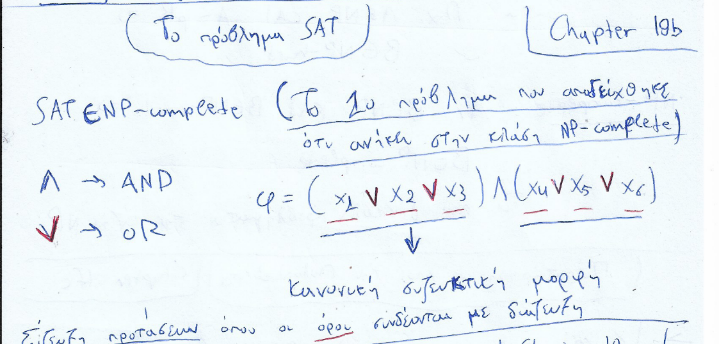 (Το πρόβλημα SAT)
Chapter 19b
SAT ∈ NP-complete (Το 1ο πρόβλημα που αποδείχθηκε
ότι ανήκει στην κλάση NP-complete)
Λ → AND
V → OR
φ = (x1 V x2 V x3) Λ (x4 V x5 V x6)
Κανονική συζευκτική μορφή
Σύζευξη προτάσεων όπου οι όροι συνδέονται με διάζευξη